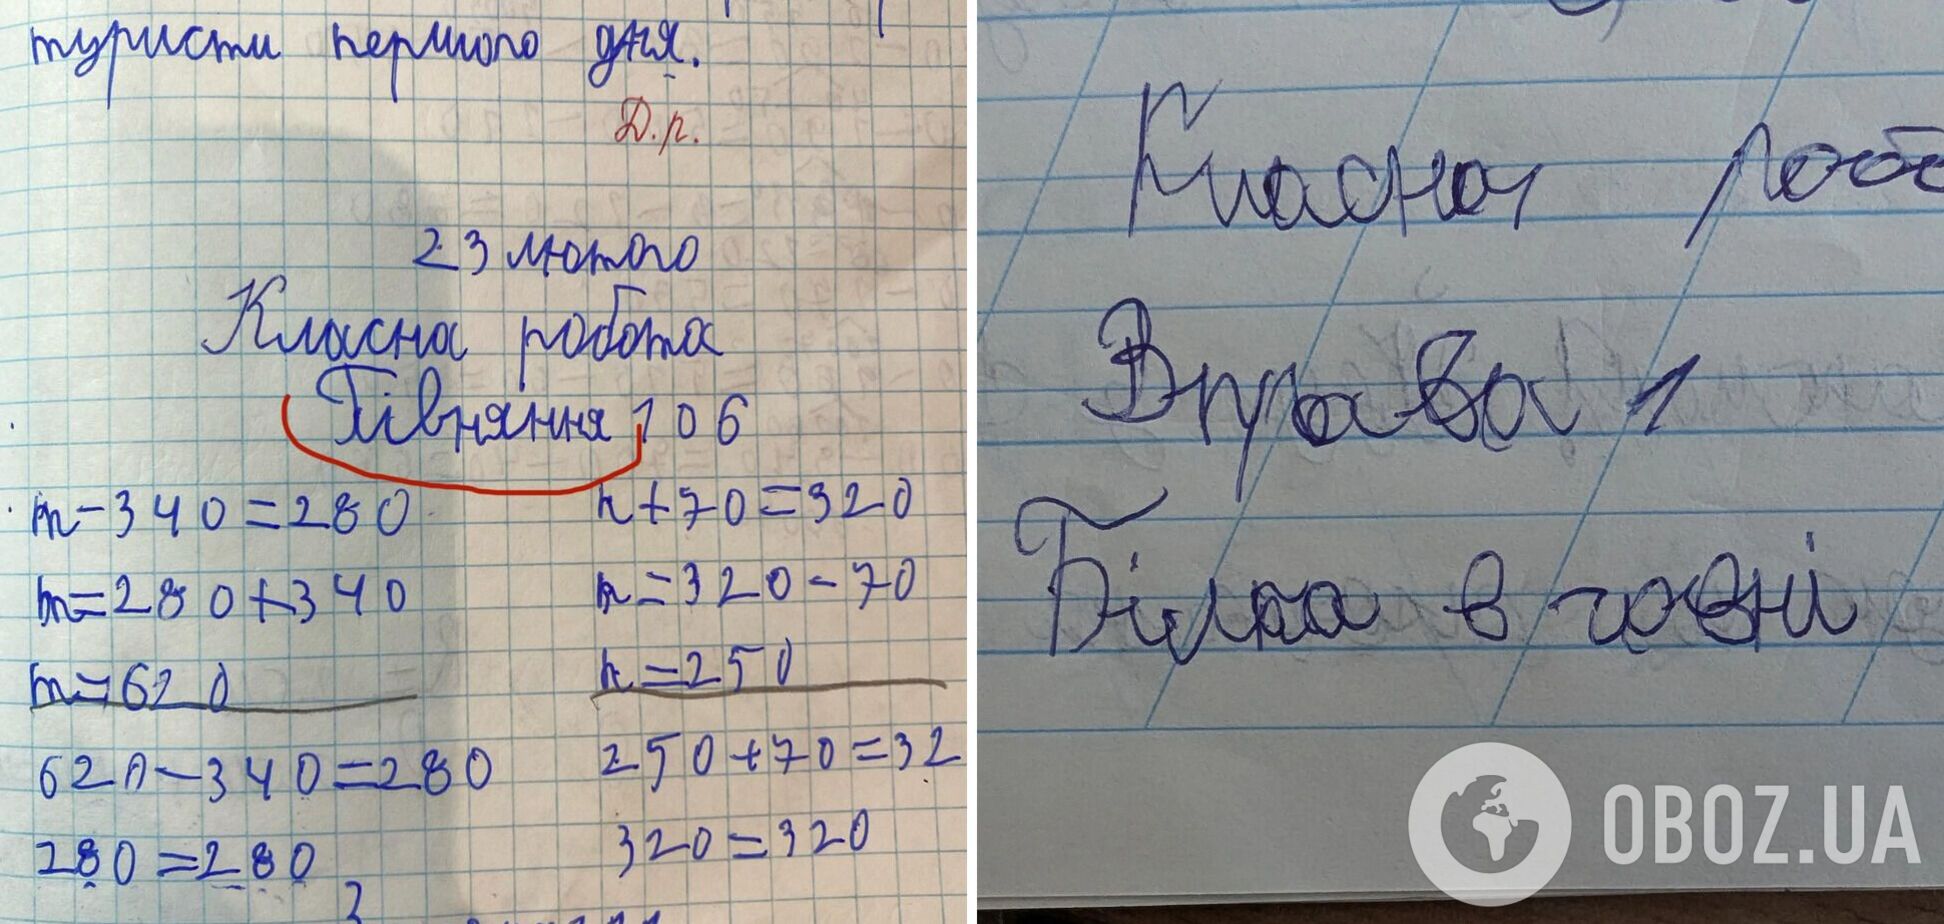 туристи першого дня.
Д.р.
23 лютого
Класна робота
Півняння 106
m-340=280
n+70=320
m=280+340
n=320-70
m=620
n=250
620-340=280
250+70=32
280=280
320=320
Класна роб
Вправа 1
Білка в човні
OBOZ.UA